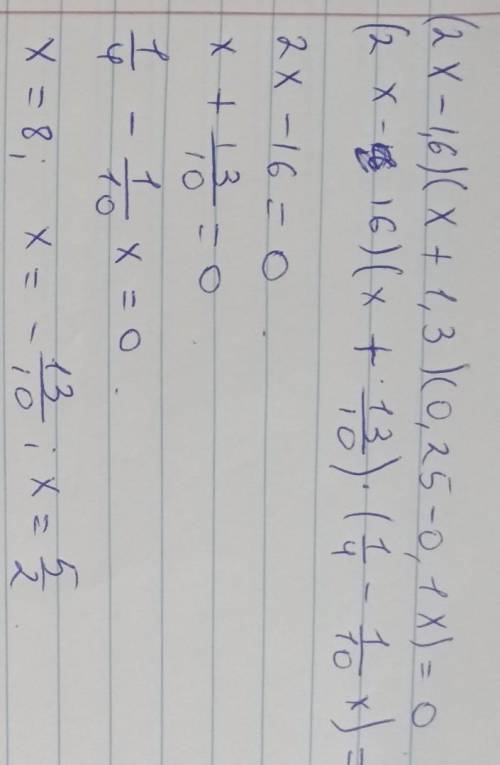 (2x-1,6)(x+1,3)(0,25-0,1x)=0
(2x-16)(x+13/10)·(1/4-1/10x)=
2x-16=0
x+13/10=0
1/4-1/10x=0
x=8; x=-13/10; x=5/2